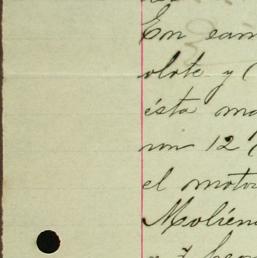 En cam
olote y (
ésta ma
un 12
el moto
Molien